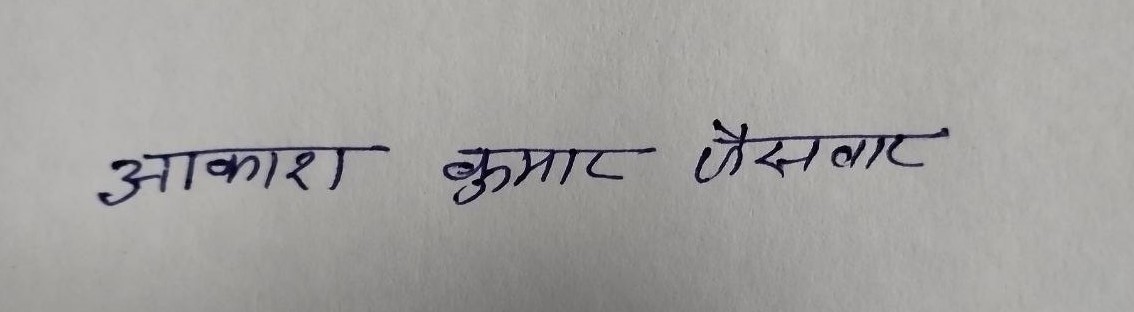 आकाश कुमार जैसवार